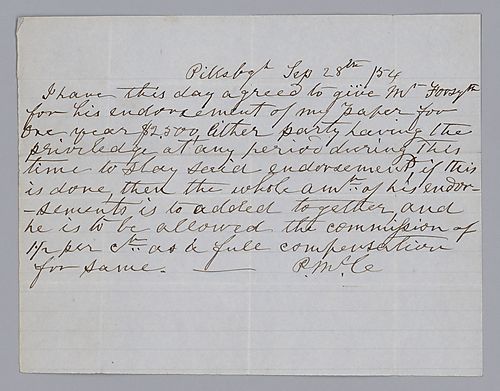 Pittsbgh Sep 28th /54
I have this day agreed to give Mr Forsyth
for his endorsement of my paper for
One year $2500, Either party having the
priviledge at any period during this
time to stay said endorsement, if this
is done, then the whole amt. of his endor-
-sements is to added together, and
he is to be allowed the commission of
1½ per ct. as a full compensation
for same. — P. McC